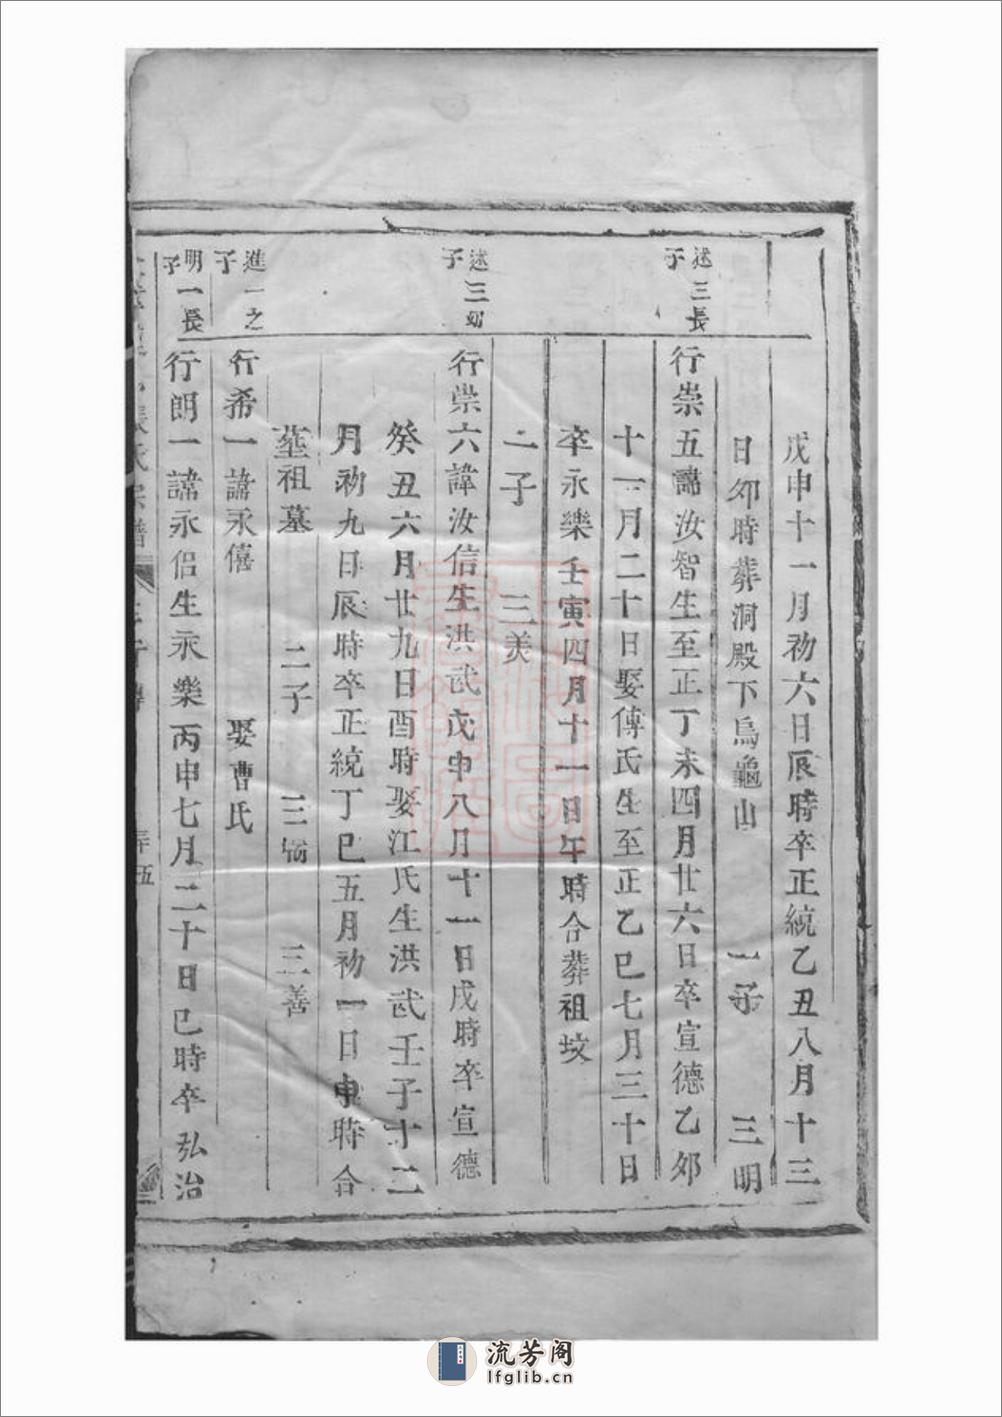 戊申十一月初六日辰時卒正統乙丑八月十三
日卯時葬洞殿下烏龜山 一子 三明
述三長子
行崇五諱汝智生至正丁未四月廿六日卒宣德乙卯
十一月二十日娶傅氏生至正乙巳七月三十日
卒永樂壬寅四月十一日午時合葬祖墳
二子 三美
述三幼子
行崇六諱汝信生洪武戊申八月十一日戌時卒宣德
癸丑六月廿九日酉時娶江氏生洪武壬子十二
月初九日辰時卒正統丁巳五月初一日申時合
塟祖墓 二子 三 三善
進一之子
行希一諱永僖 娶曹氏
明一長子
行朗一諱永侣生永樂丙申七月二十日巳時卒弘治
張氏宗譜
五
流芳阁
lfglib.cn